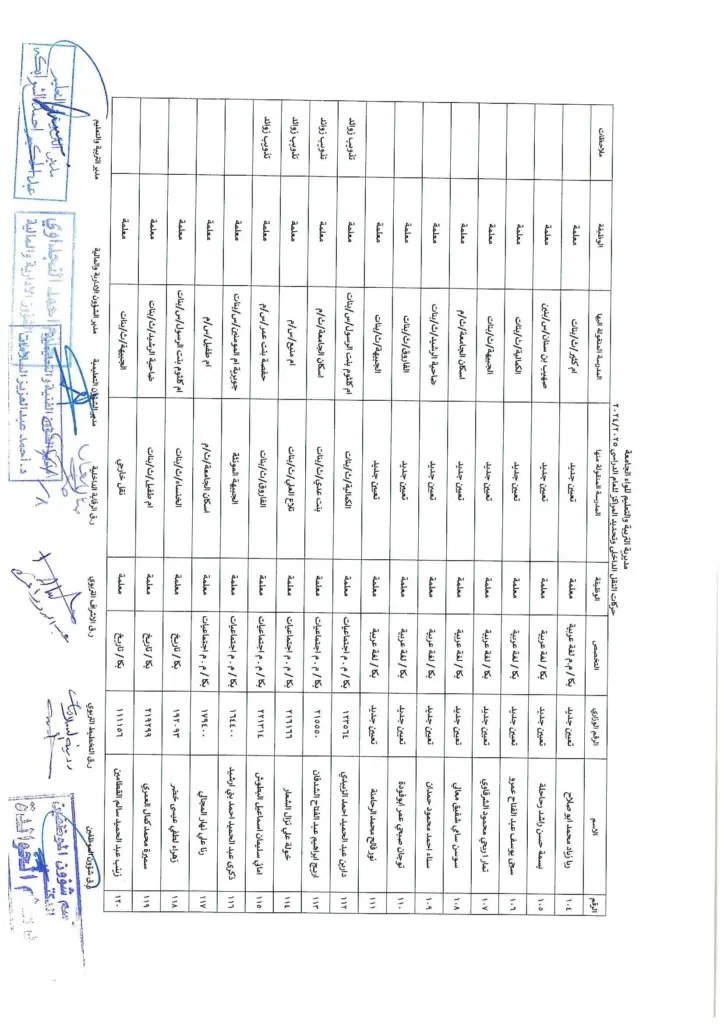 مديرية التربية والتعليم للواء الجامعة
حركات النقل الداخلي وتحديد المراكز للعام الدراسي ٢٠٢٤/٢٠٢٥
الرقم الاسم الرقم الوزاري التخصص الوظيفة المدرسة المنقولة منها المدرسة المنقولة اليها الوظيفة ملاحظات
١٠٤ ربا زياد محمد ابو صلاح تعيين جديد بكا / م.م لغة عربية معلمة تعيين جديد ام كثير/ث/بنات معلمة
١٠٥ بسمة حسن راشد رحاحلة تعيين جديد بكا / لغة عربية معلمة تعيين جديد صهيب بن سنان/س/بنين معلمة
١٠٦ سجى يوسف عبد الفتاح عمرو تعيين جديد بكا / لغة عربية معلمة تعيين جديد الكمالية/ث/بنات معلمة
١٠٧ تمارا ربحي محمود الشرقاوي تعيين جديد بكا / لغة عربية معلمة تعيين جديد الجبيهة/ث/بنات معلمة
١٠٨ سوسن سامي شفيق معالي تعيين جديد بكا / لغة عربية معلمة تعيين جديد اسكان الجامعة/ث/م معلمة
١٠٩ سناء احمد محمود حمدان تعيين جديد بكا / لغة عربية معلمة تعيين جديد ضاحية الرشيد/ث/بنات معلمة
١١٠ توجان صبحي عمر ابوفودة تعيين جديد بكا / لغة عربية معلمة تعيين جديد الفاروق/ث/بنات معلمة
١١١ نور فالح محمد الرحامنة تعيين جديد بكا / لغة عربية معلمة تعيين جديد الجبيهة/ث/بنات معلمة
١١٢ دارين عبد الحميد احمد الزبيدي ١٢٣٥٦٤ بكا / م . م اجتماعيات معلمة الكمالية/ث/بنات ام كلثوم بنت الرسول/س/بنات معلمة تذويب زوائد
١١٣ اريج ابراهيم عبد الفتاح الشدفان ٢١٥٥٥٠ بكا / م . م اجتماعيات معلمة بنت عدي/ث/بنات اسكان الجامعة/ث/م معلمة تذويب زوائد
١١٤ خولة علي نزال الشعار ٢١٦١٦٦ بكا / م . م اجتماعيات معلمة تلاع العلي/ث/بنات ام منيع/س/م معلمة تذويب زوائد
١١٥ اماني سليمان اسماعيل البطوش ٢٢١٣١٤ بكا / م . م اجتماعيات معلمة الفاروق/ث/بنات حفصة بنت عمر/س/م معلمة تذويب زوائد
١١٦ ذكرى عبد الحميد احمد بني ارشيد ١٦٤٤٠٠ بكا / م . م اجتماعيات معلمة الجبيهة المؤنثة جويرية ام المومنين/س/بنات معلمة
١١٧ رنا علي نهار المجالي ١٧٩٤٠٠ بكا / م . م اجتماعيات معلمة اسكان الجامعة/ث/م ام طفيل/س/م معلمة
١١٨ زهراء لطفي عيسى خضر ١٩٢٠٩٣ بكا / تاريخ معلمة الخنساء/ث/بنات ام كلثوم بنت الرسول/س/بنات معلمة
١١٩ سميرة محمد كمال العمري ٢١٩٢٩٩ بكا / تاريخ معلمة ام طفيل/ث/بنات ضاحية الرشيد/ث/بنات معلمة
١٢٠ زينب عبد الحميد سالم القطامين ١١١١٥٦ بكا / تاريخ معلمة نقل خارجي الجبيهة/ث/بنات معلمة
ر.ق شؤون الموظفين ر.ق التخطيط التربوي ر.ق الاشراف التربوي ر.ق الرقابة الداخلية مدير الشؤون التعليمية مدير الشؤون الادارية والمالية مدير التربية والتعليم
مدير الشؤون الفنية والتعليمية
د. احمد عبدالعزيز السلامات